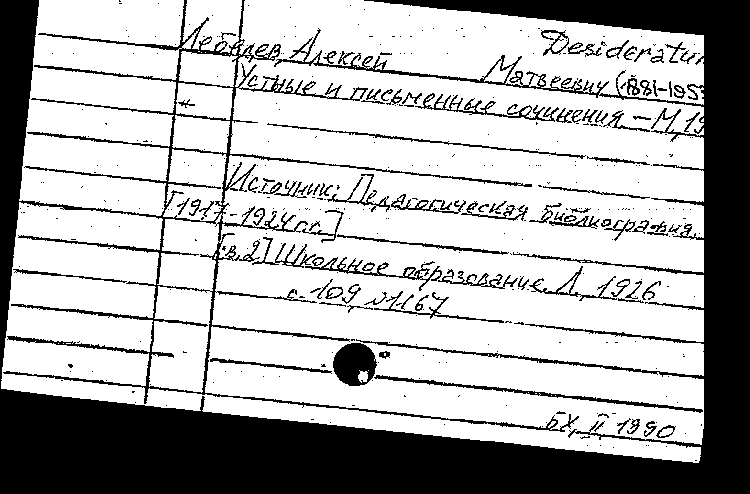 Desideratu
Лебедев, Алексей Матвеевич (1881-1953
Устные и письменные сочинения. — М, 19
+
Источник: Педагогическая библиография.
[1917-1924 гг.]
[в. 2] Школьное образование. Л, 1926
с. 109, №1167
БХ, II 1990